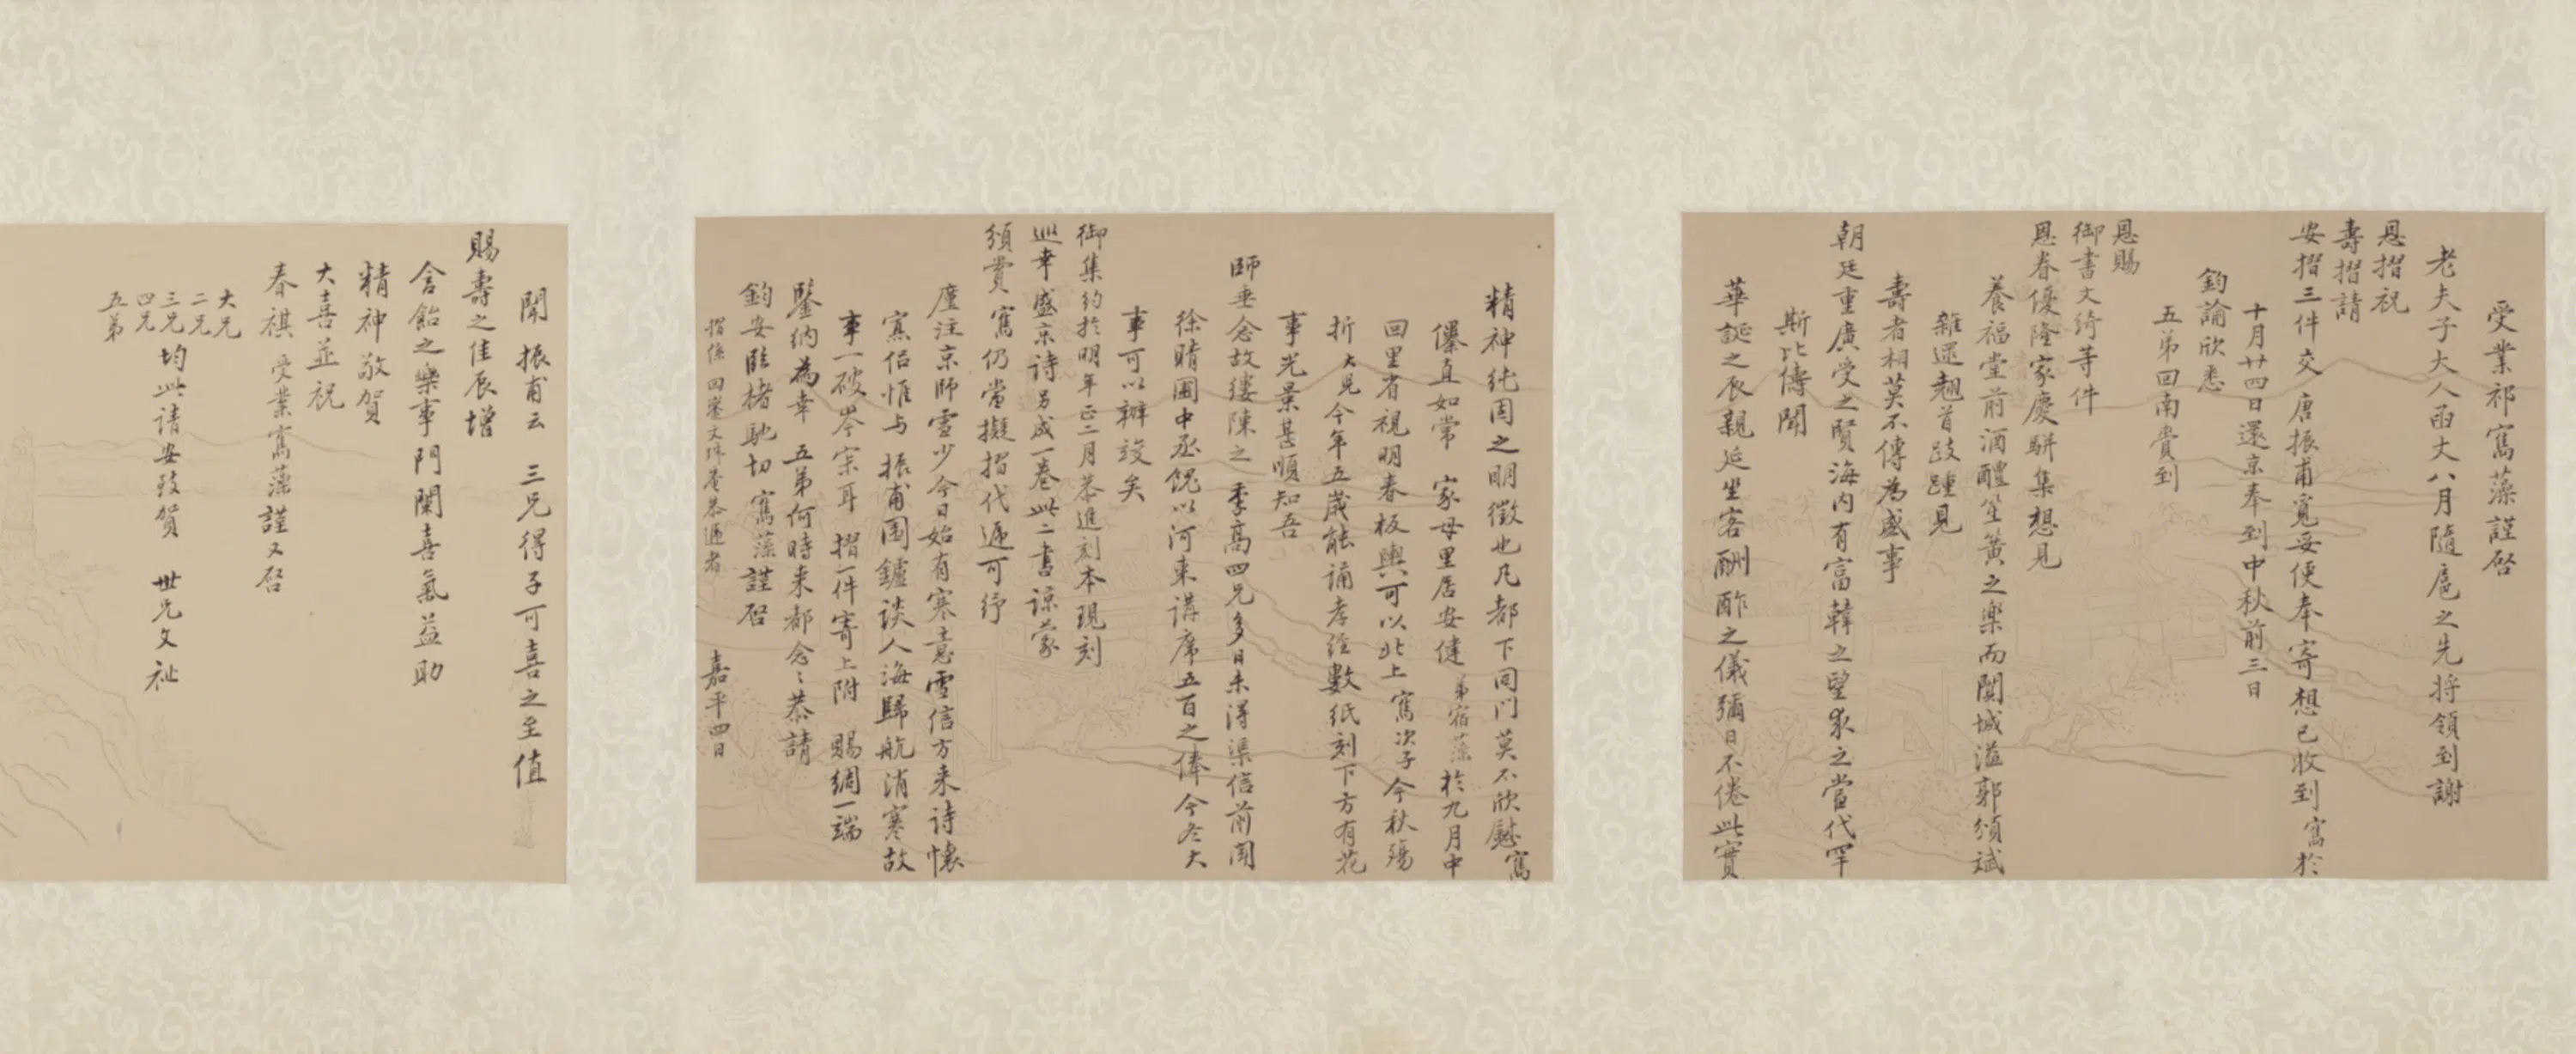 受業祁寯藻謹啓
老夫子大人函丈八月隨扈之先將領到謝
恩摺祝
壽摺請
安摺三件交唐振甫覓妥便奉寄想已收到寯於
十月廿四日還京奉到中秋前三日
鈞諭欣悉
五弟回南賫到
恩賜
御書文綺等件
恩眷優隆家慶駢集想見
養福堂前酒醴笙簧之樂而闔城溢郭頒斌
雜遝翹首跂踵見
壽者相莫不傳為盛事
朝廷重廣受之賢海内有富韓之望求之當代罕
斯比傳聞
華誕之辰親延坐客酬酢之儀彌日不倦此實
精神純固之明徵也凡都下同門莫不欣慰寯
儤直如常 家母里居安健弟宿藻於九月中
回里省視明春板輿可以北上寯次子今秋殤
折大兒今年五歲能誦孝經數紙刻下方有花
事光景甚順知吾
師垂念故縷陳之 季高四兄多日未得渠信前聞
徐晴圃中丞餽以河東講席五百之俸今冬大
事可以辦竣矣
御集約於明年正二月恭進刻本現刻
巡幸盛京詩另成一卷此二書諒蒙
頒賞寯仍當擬摺代遞可紓
廑注京師雪少今日始有寒意雪信方来詩懷
寯侶惟与 振甫圍鑪談人海歸航消寒故
事一破岑寂耳 摺一件寄上附 賜綢一端
鑒納為幸 五弟何時来都念〻恭請
鈞安臨楮馳切 寯藻謹啓 嘉平四日
摺係 回鑾文殊菴恭遞者
聞振甫云 三兄得子可喜之至值
賜壽之佳辰增
含飴之樂事門闌喜氣益助
精神敬賀
大喜並祝
春祺 受業寯藻謹又啓
大兄
二兄
三兄均此請安致賀 世兄文祉
四兄
五弟